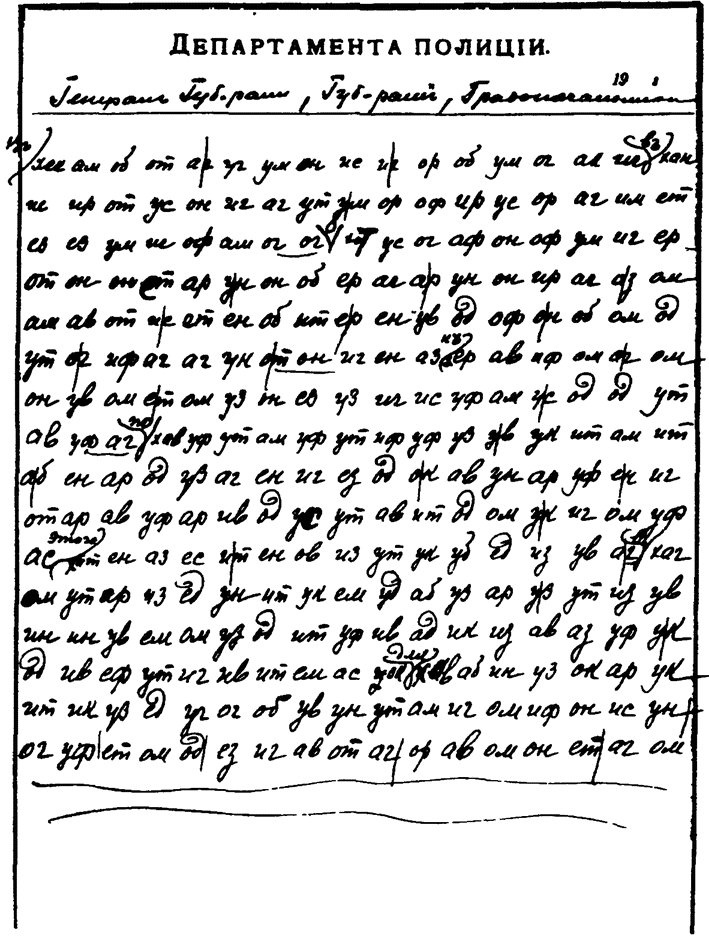 ДЕПАРТАМЕНТА ПОЛИЦІИ.
19
Губ-рамъ, Губ-рамъ,
ам об от аг уг ум он ис иг ор об ум ог ак
ир от ус он иг аг ут ум ор оф ир ус ор аг им ет
ез ез ум ис оф ам ог ог ут ус ог аф он оф ум иг ер
от он он ет ар ун он об ер аг ар ун он ир аг аз ом
ам ав от ис ет ен об ит ер ен ув од оф он об ом од
ут ог иф аг аг ун от он иг ен аз ер ав иф ом аг ом
он ув ом ет ом уз он ез уз ич ис уф ам ук од од ут
ав уф аг хав уф ут ам уф ут иф уф уз ув ук ит ам ит
аб ен ар од уз аг ен иг ез од ок ав ун ар уф ек иг
от ар ав уф ар ив од ус ут ав ит од ом ук иг ом уф
этого
ас ит ен аз ес ит ен ов из ут ук уб ед из ув аг хаг
ом ут ар из ед ун ит ук ем уд аб уз ар уз ут из ув
ин ин ув ем ом уз од ит уф ив ад ик из ав аз уф ук
для
од ив еф ут иг ив ит ем ас аб ин уз ок ар ук
ит ик уз ед уг ог об ув ун ут ам иг ом иф он ис ун
ог уф ет ом од ез иг ав от аг ор ав ом он ет аг ом